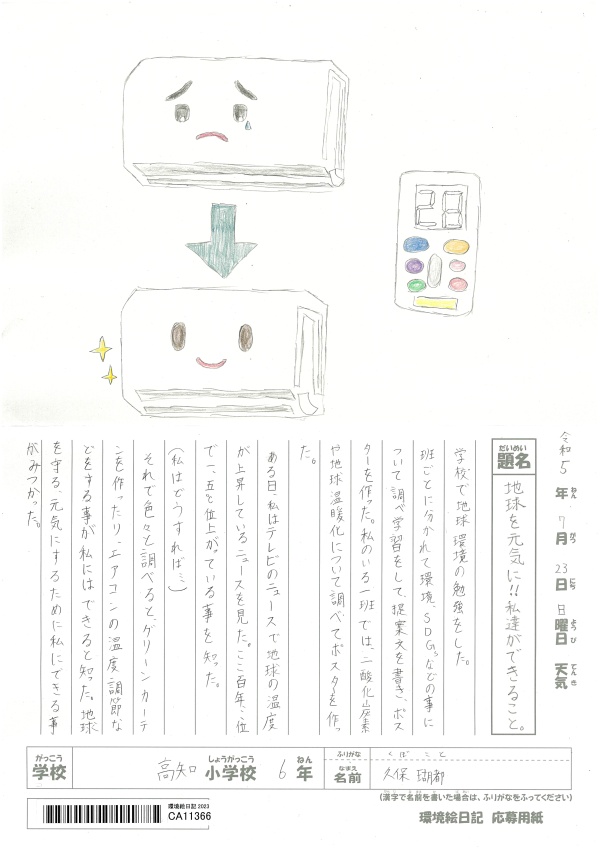 28
令和5年ねん7月がつ23日にち日曜日ようび 天気てんき
だいめい
題名
地球を元気に!!私達ができること。
学校で地球環境の勉強をした。
班ごとに分かれて環境、SDGsなどの事に
ついて調べ学習をして、提案文を書き、ポス
ターを作った。私のいる一班では、二酸化炭素
や地球温暖化について調べてポスターを作っ
た。
ある日、私はテレビのニュースで地球の温度
が上昇しているニュースを見た。ここ百年、位
で一、五℃位上がっている事を知った。
(私はどうすれば…)
それで色々と調べると、グリーンカーテ
ンを作ったり、エアコンの温度調節な
どをする事が私にはできると知った。地球
を守る、元気にするために私にできる事
がみつかった。
がっこう
学校
高知
しょうがっこう
小学校
6
ねん
年
ふりがな
くぼ こと
なまえ
名前
久保 瑚都
(漢字で名前を書いた場合は、ふりがなをふってください)
環境絵日記 2023
CA11366
環境絵日記 応募用紙